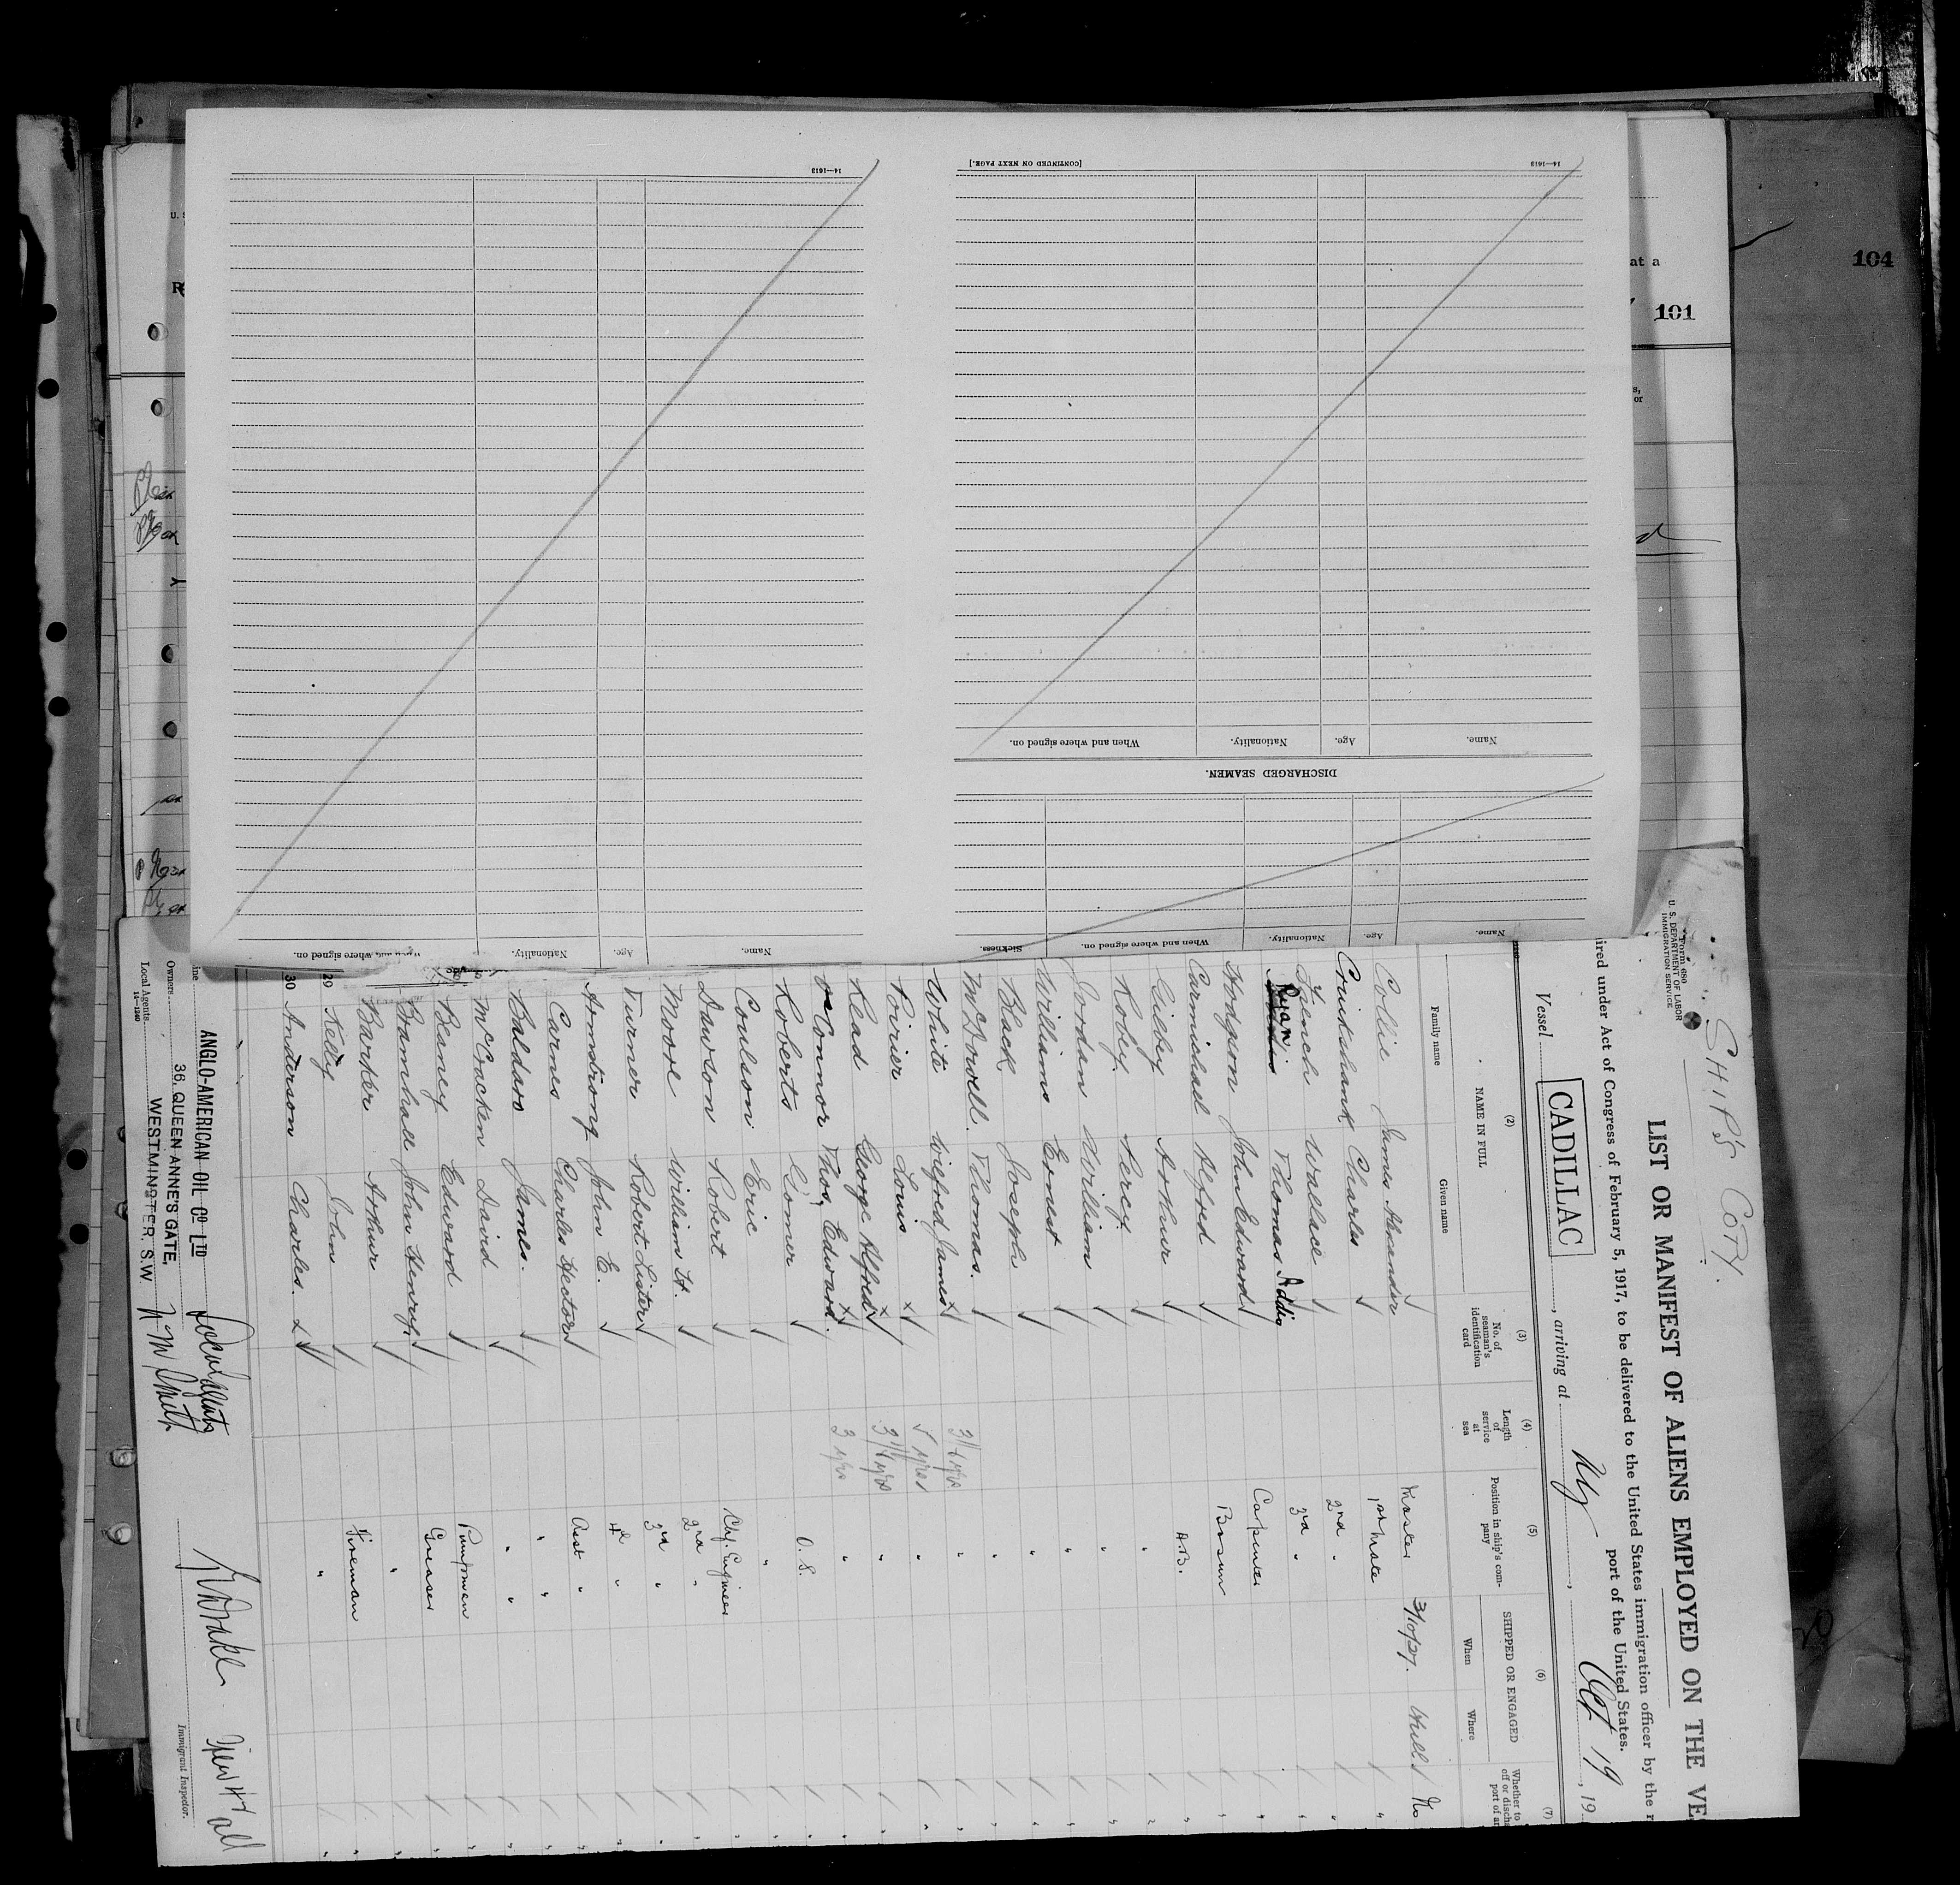 [CONTINUED ON NEXT PAGE.]
14—1613
14—1613
Name.
Age.
Nationality.
When and where signed on.
DISCHARGED SEAMEN.
Name.
Age.
Nationality.
When and where signed on.
Sickness.
Name.
Age.
Nationality.
When and where signed on.
104
at a
101
s,
or
U. S
R
SHIP'S COPY.
Form 680
U. S. DEPARTMENT OF LABOR
IMMIGRATION SERVICE
LIST OR MANIFEST OF ALIENS EMPLOYED ON THE VE
ired under Act of Congress of February 5, 1917, to be delivered to the United States immigration officer by the r
port of the United States.
Vessel CADILLAC, arriving at NY, Oct 19, 19
(2) (3) (4) (5) (6) (7)
NAME IN FULL
Family name Given name
No. of seaman's identification card
Length of service at sea
Position in ship's company
SHIPPED OR ENGAGED
When Where
Whether to
off or discha
port of ar
Collie James Alexander Master 3/10/27. Hull No
Cruikshank Charles 1st Mate
French Wallace 2nd "
Ryan Thomas Addis 3rd "
Hodgson John Edward Carpenter
Carmichael Alfred Bosun
Gilbey Arthur A.B.
Robey Percy "
Jordan William "
Williams Ernest "
Black Joseph "
McDowell Thomas. "
White Wilfred James 3 1/2 yrs "
Poirier Louis yrs "
Read George Alfred 3 1/2 yrs "
O'Connor Thos, Edward. 3 yrs "
Roberts Gomer O.S.
Coulson Eric "
Dawson Robert Chf. Engineer
Moore William H. 2nd "
Turner Robert Lister 3rd "
Armstrong John E. 4th "
Carnes Charles Hector Asst "
Baldaro James. " "
McCracken David " "
Beaney Edward Pumpman
Bramhall John Henry. Greaser
Barker Arthur "
29 Kelly John Fireman
30 Anderson Charles. "
ine ANGLO-AMERICAN OIL CO LTD
Owners 36, QUEEN ANNE'S GATE,
Local Agents WESTMINSTER, S.W.
14—1240
Immigrant Inspector.